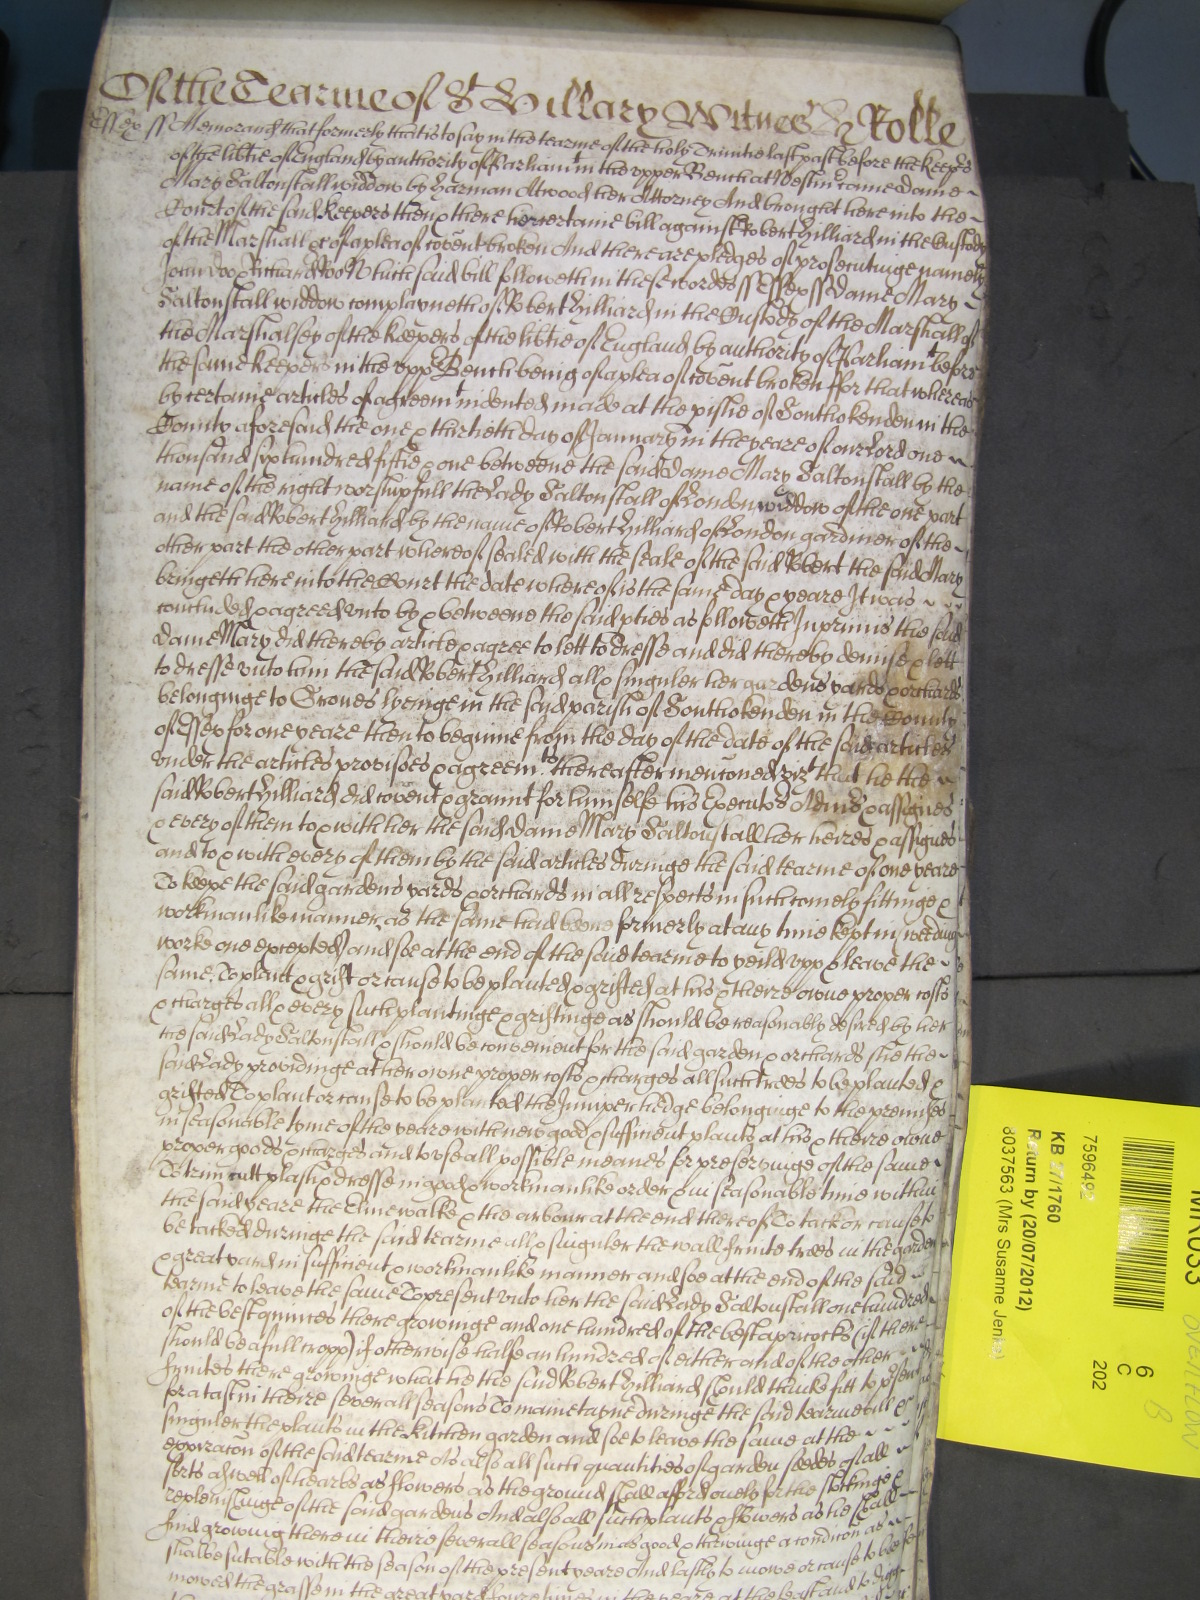 Of the Tearme of St Hillary Witnes H Rolle
Essex ss Memorand that formerly that is to say in the tearme of the holy Trinitie last past before the keepers
of the lib'tie of England by authority of Parliamt in the upper Bench at Westm' came Dame
Mary Saltonstall widdow by Harman Atwood her Attorney And brought here into the
Court of the said Keepers then & there her certaine bill against Robert Hilliard in the Custody
of the Marshall &c of a plea of coven't broken And there are pledges of prosecutinge namely
John Doo & Richard Roo Which said bill followeth in these wordes ss Essex ss Dame Mary
Saltonstall widdow complayneth of Robert Hilliard in the Custody of the Marshall of
the Marshalsey of the keepers of the lib'tie of England by authority of Parliamt before
the same keepers in the upp Bench being of a plea of coven't broken ffor that whereas
by certaine articles of agreemt indented made at the p'ishe of Southokenden in the
County aforesaid the one & thirtieth day of January in the yeare of our Lord one
thousand six hundred fiftie & one betweene the said Dame Mary Saltonstall by the
name of the right worshipfull the Lady Saltonstall of London widdow of the one part
and the said Robert Hilliard by the name of Robert Hilliard of London gardiner of the
other part the other part whereof sealed with the seale of the said Robert the said Mary
bringeth here into the Court the date whereof is the same day & yeare It was
concluded & agreed unto by & betweene the said p'ties as followeth Inprimis the said
Dame Mary did thereby article & agree to lett to dresse and did thereby demise & lett
to dresse unto him the said Robert Hilliard all & singuler her gardens yards & orchards
belonginge to Groves lyeinge in the said parish of Southokenden in the County
of Essex for one yeare then to beginne from the day of the date of the said articles
under the articles provisoes & agreemts thereafter menconed vizt that he the
said Robert Hilliard did coven't & graunt for himselfe his Executors Admi's & assignes
& every of them to & with her the said Dame Mary Saltonstall her heires & assignes
and to & with every of them by the said articles duringe the said tearme of one yeare
To keepe the said gardens yards & orchards in all respects in such comely fittinge &
workmanlike manner as the same had beene formerly at any time kept in (weeding
worke one excepted) and soe at the end of the said tearme to yeild upp & leave the
same. To plant & grift or cause to be planted & grifted at his & theire owne proper costs
& charges all & every such plantinge & griftinge as should be reasonably desired by her
the said Lady Saltonstall & should be convenient for the said garden & orchards she the
said Lady providinge at her owne proper costs & charges all such trees to be planted &
grifted To plant or cause to be planted the Juniper hedge belonginge to the premises
in seasonable tyme of the yeare with new good & sufficient plants at his & theire owne
proper goods & charges and to use all possible meanes for preservinge of the same
To trim cutt plash & dresse in good & workmanlike order & in seasonable time within
the said yeare the Elme walke & the arbour at the end thereof To tack or cause to
be tacked duringe the said tearme all & singuler the wall fruite trees in the garden
& great yard in sufficient & workmanlike manner and soe at the end of the said
tearme to leave the same To present unto her the said Lady Saltonstall one hundred
of the best quinces there growinge and one hundred of the best apricocks (if there
should be a full cropp) if otherwise halfe an hundred of either and of the other
fruites there growinge what he the said Robert Hilliard should thinke fitt to p'sent
for a tast in theire severall seasons To maintayne duringe the said tearme all &
singuler the plants in the Kitchen garden and soe to leave the same at the
expiracon of the said tearme As also all such quantities of garden seedes of all
sorts aswell of hearbs as flowers as the ground shall afford onely for the stockinge &
replenishinge of the said gardens And also all such plants & flowers as he shall
find growing there in theire severall seasons in as good & thrivinge a condicon as
shalbe sutable with the season of the present yeare And lastly to mowe or cause to be
mowed the grasse in the great yard foure times in the yeare at the least and to digg
MR033
7596492
KB 27/1760
Return by (20/07/2012)
8037563 (Mrs Susanne Jen
6
C
202